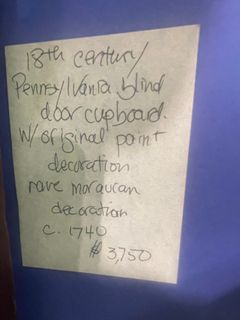 18th century
Pennsylvania blind
door cupboard.
w/ original paint
decoration
rare moravian
decoration
c. 1740
$3,750